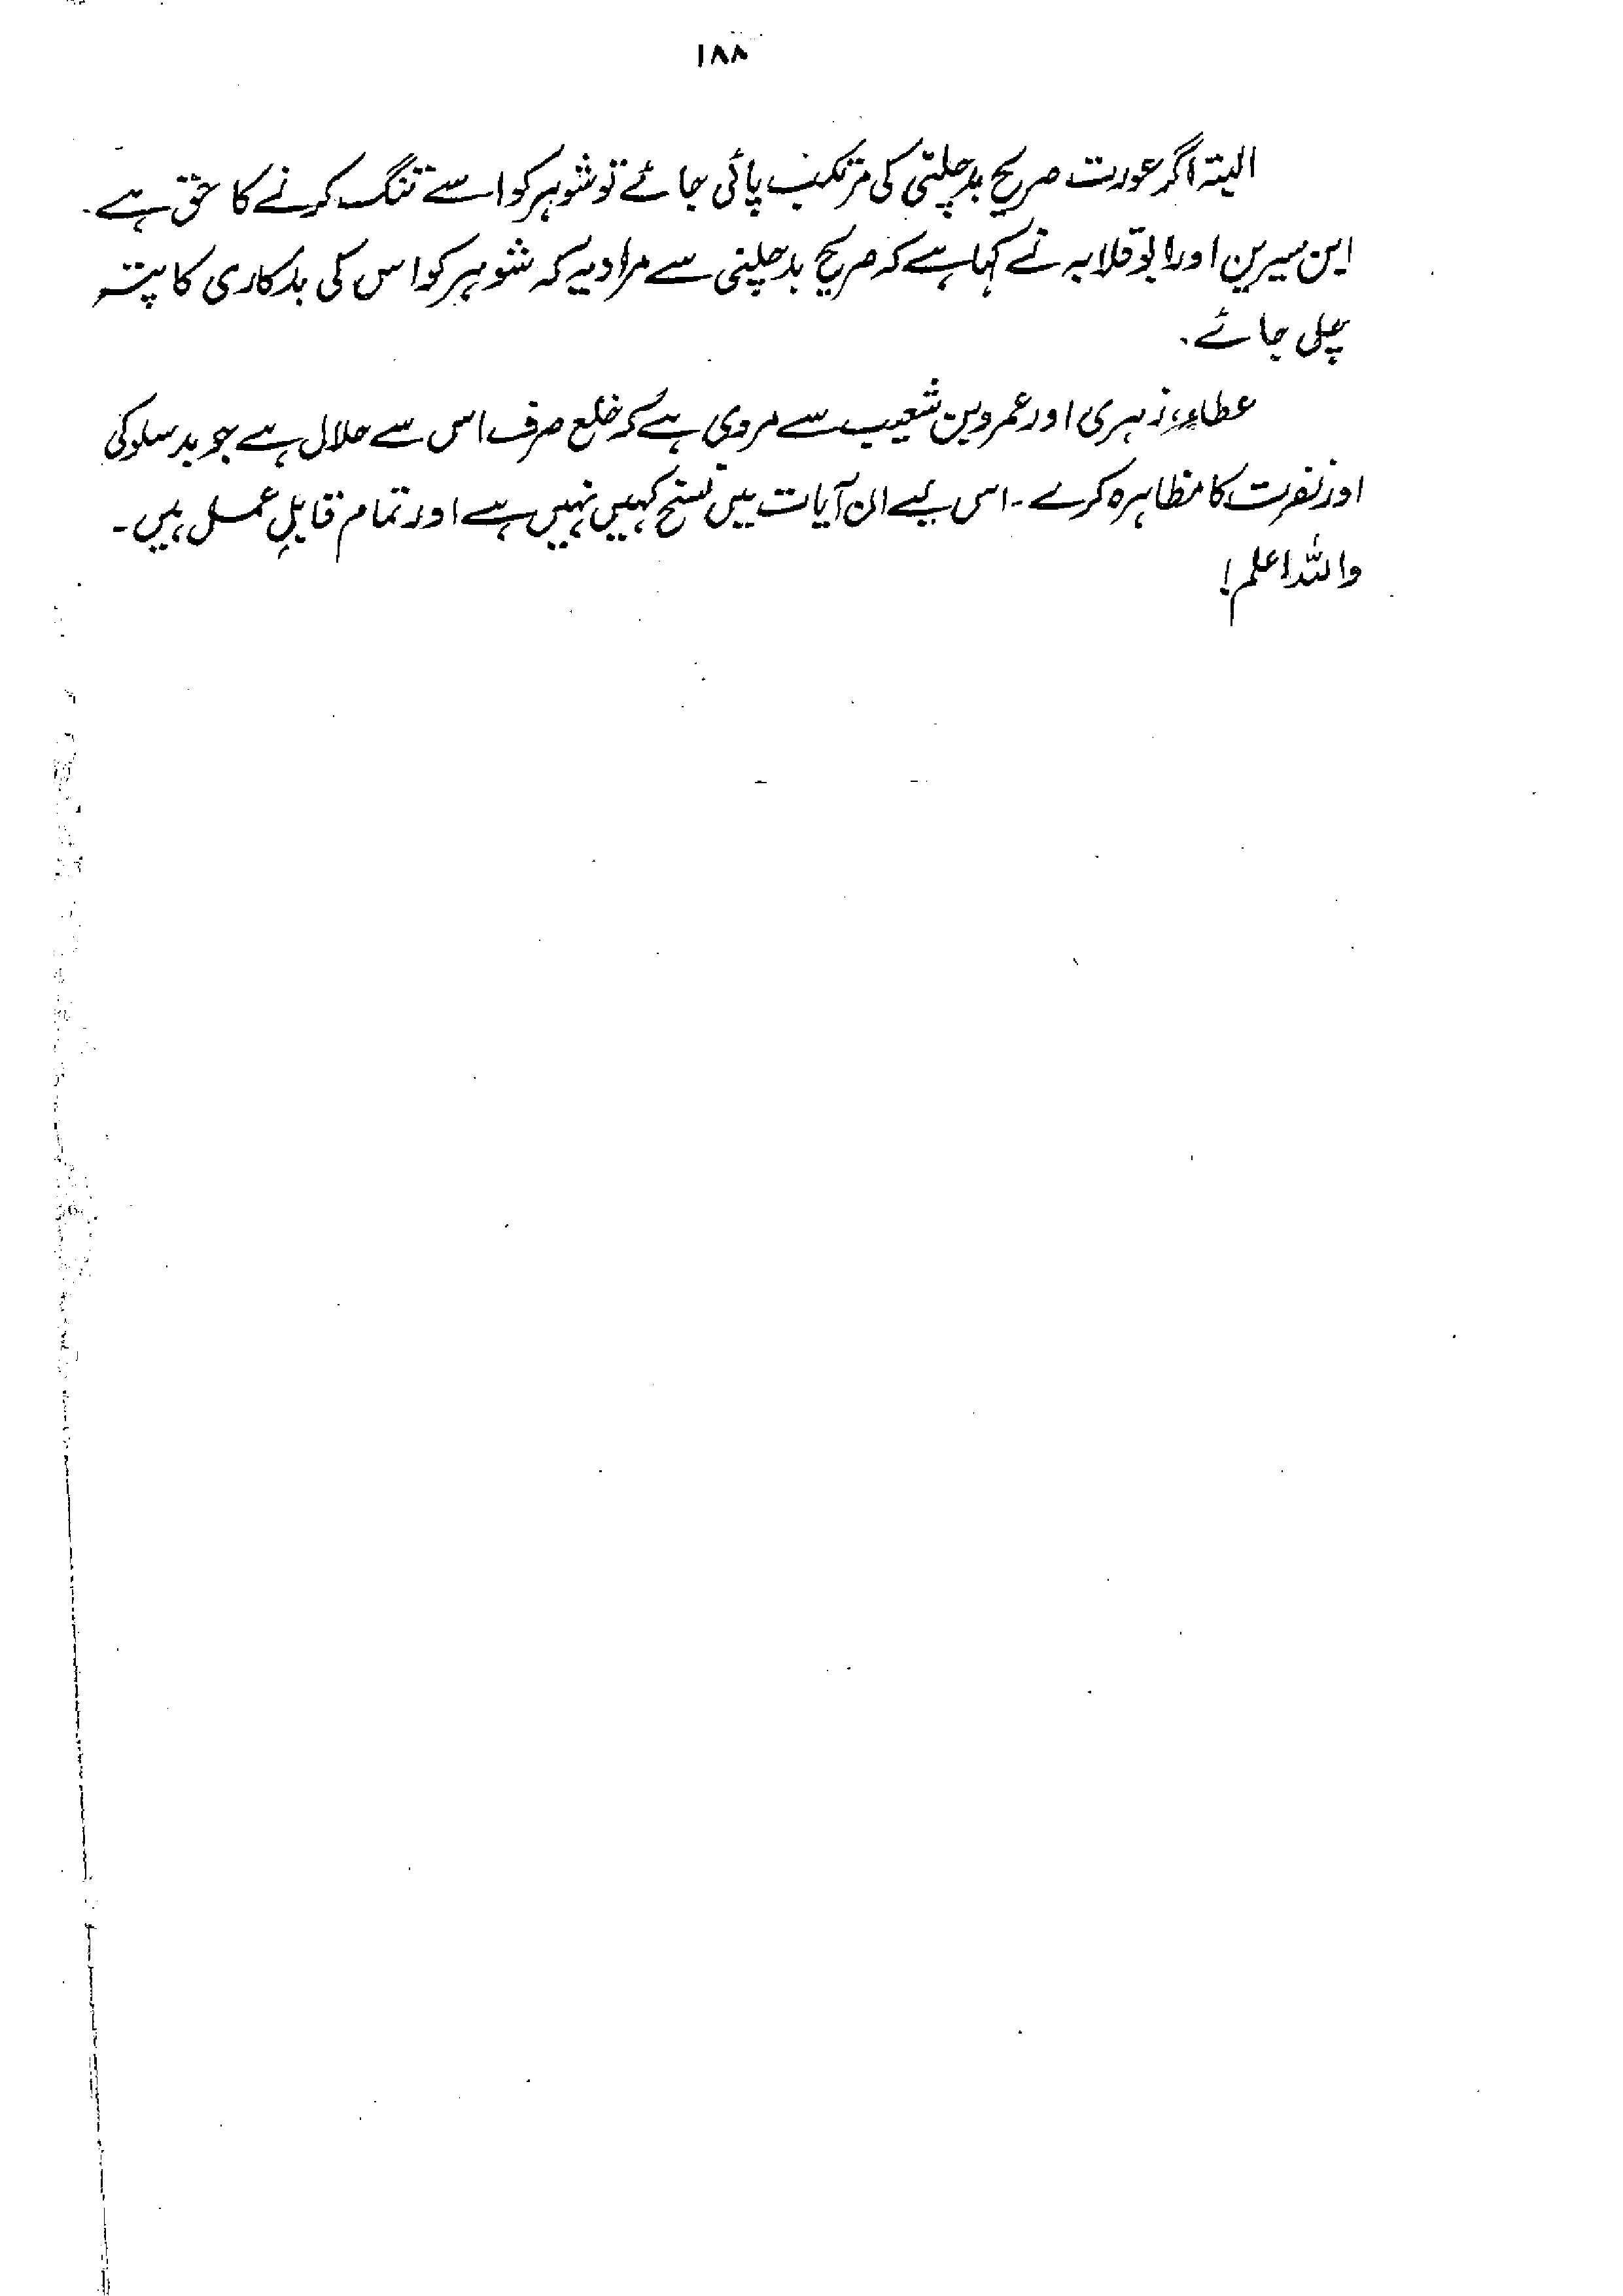 ۱۸۸
البتہ اگر عورت صریح بدچلنی کی مرتکب پائی جائے تو شوہر کو اسے تنگ کرنے کا حق ہے۔
ابن سیرین اور ابوقلابہ نے کہا ہے کہ صریح بدچلنی سے مراد یہ کہ شوہر کو اس کی بدکاری کا پتہ
چل جائے۔
عطاء، زہری اور عمرو بن شعیب سے مروی ہے کہ خلع صرف اس سے حلال ہے جو بدسلوکی
اور نفرت کا مظاہرہ کرے۔ اسی لیے ان آیات میں نسخ کہیں نہیں ہے اور تمام قابلِ عمل ہیں۔
واللہ اعلم!